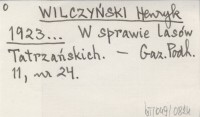 o
WILCZYŃSKI Henryk
1923... W sprawie Lasów
Tatrzańskich. – Gaz. Podh.
11, nr 24.